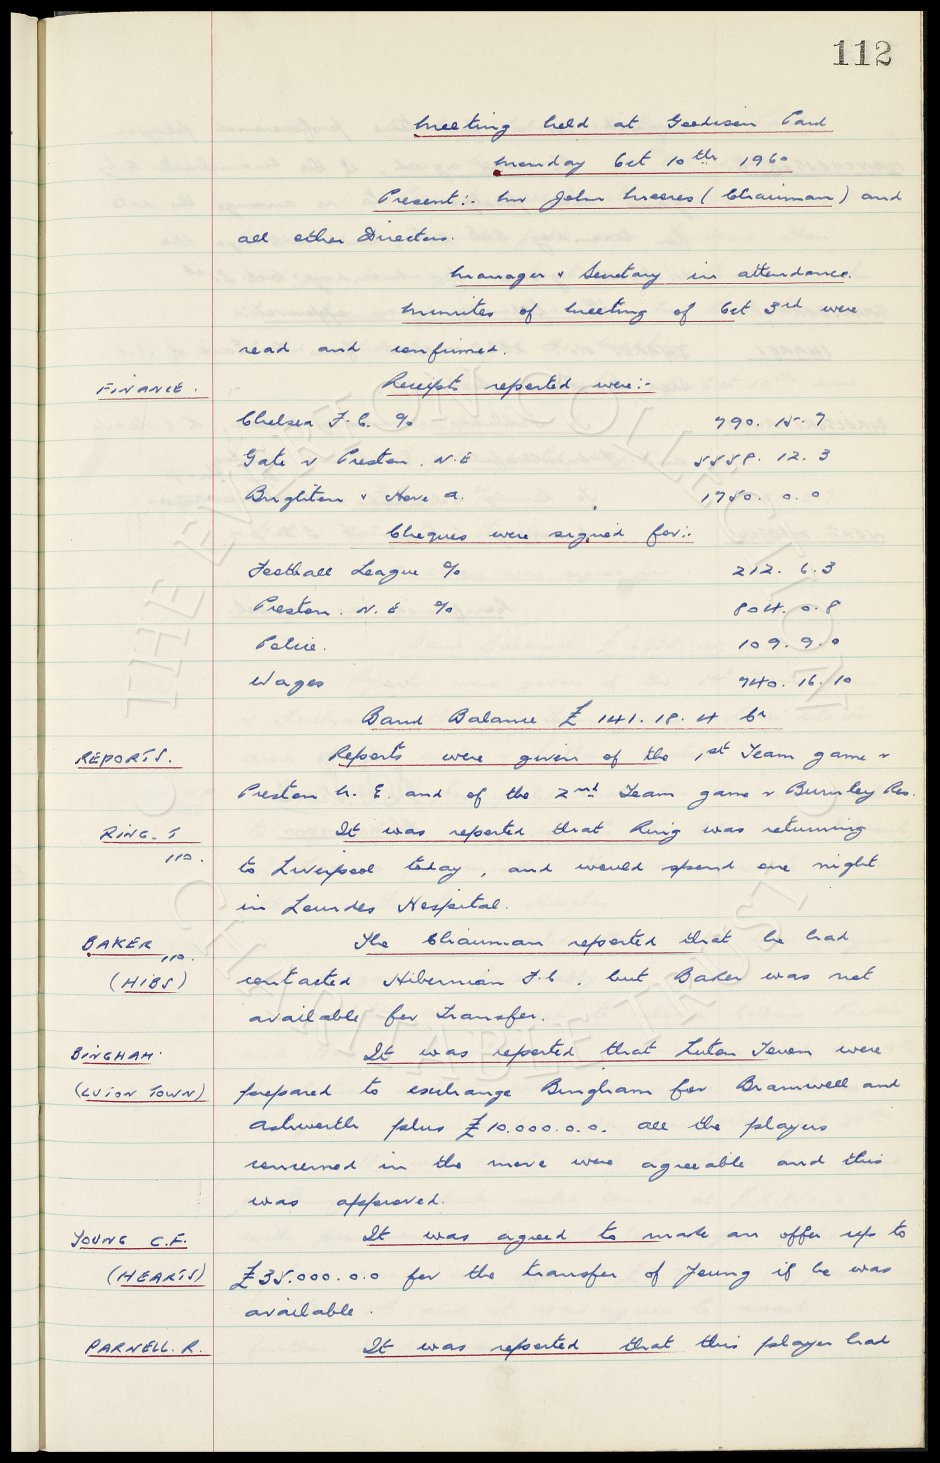 112
Meeting held at Goodison Park
Monday Oct 10th 1960
Present:- Mr John Moores (Chairman) and
all other Directors.
Manager & Secretary in attendance.
Minutes of Meeting of Oct 3rd were
read and confirmed.
FINANCE. Receipts reported were:-
Chelsea F.C. % 790. 15. 7
Gate v Preston. N.E 5558. 12. 3
Brighton & Hove A. 1750. 0. 0
Cheques were signed for:-
Football League % 212. 6. 3
Preston. N.E % 804. 0. 8
Police. 109. 9. 0
Wages 740. 16. 10
Bank Balance £ 141. 18. 4 Cr
REPORTS. Reports were given of the 1st Team game v
Preston N. E. and of the 2nd Team game v Burnley Res.
RING. T It was reported that Ring was returning
110. to Liverpool today, and would spend one night
in Lourdes Hospital.
BAKER 110. The Chairman reported that he had
(HIBS) contacted Hibernian F.C. but Baker was not
available for Transfer.
BINGHAM. It was reported that Luton Town were
(LUTON TOWN) prepared to exchange Bingham for Bramwell and
Ashworth plus £10.000.0.0. all the players
concerned in the move were agreeable and this
was approved.
YOUNG C.F. It was agreed to make an offer up to
(HEARTS) £35.000.0.0 for the transfer of Young if he was
available.
PARNELL. R. It was reported that this player had
THE EVERTON COLLECTION
CHARITABLE TRUST